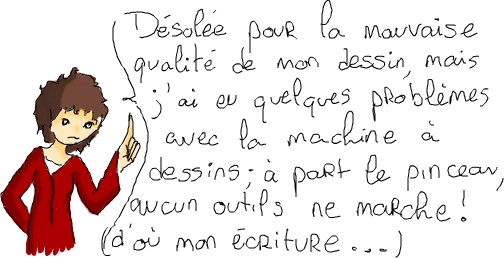 Désolée pour la mauvaise
qualité de mon dessin, mais
j'ai eu quelques problèmes
avec la machine à
dessins; à part le pinceau,
aucun outils ne marche!
(d'où mon écriture...)